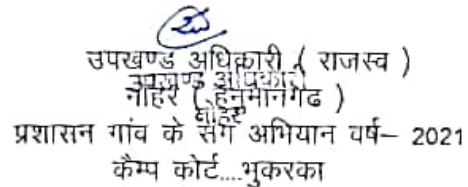 उपखण्ड अधिकारी ( राजस्व )
उपखण्ड अधिकारी
नोहर ( हनुमानगढ )
नोहर
प्रशासन गांव के संग अभियान वर्ष– 2021
कैम्प कोर्ट....भुकरका